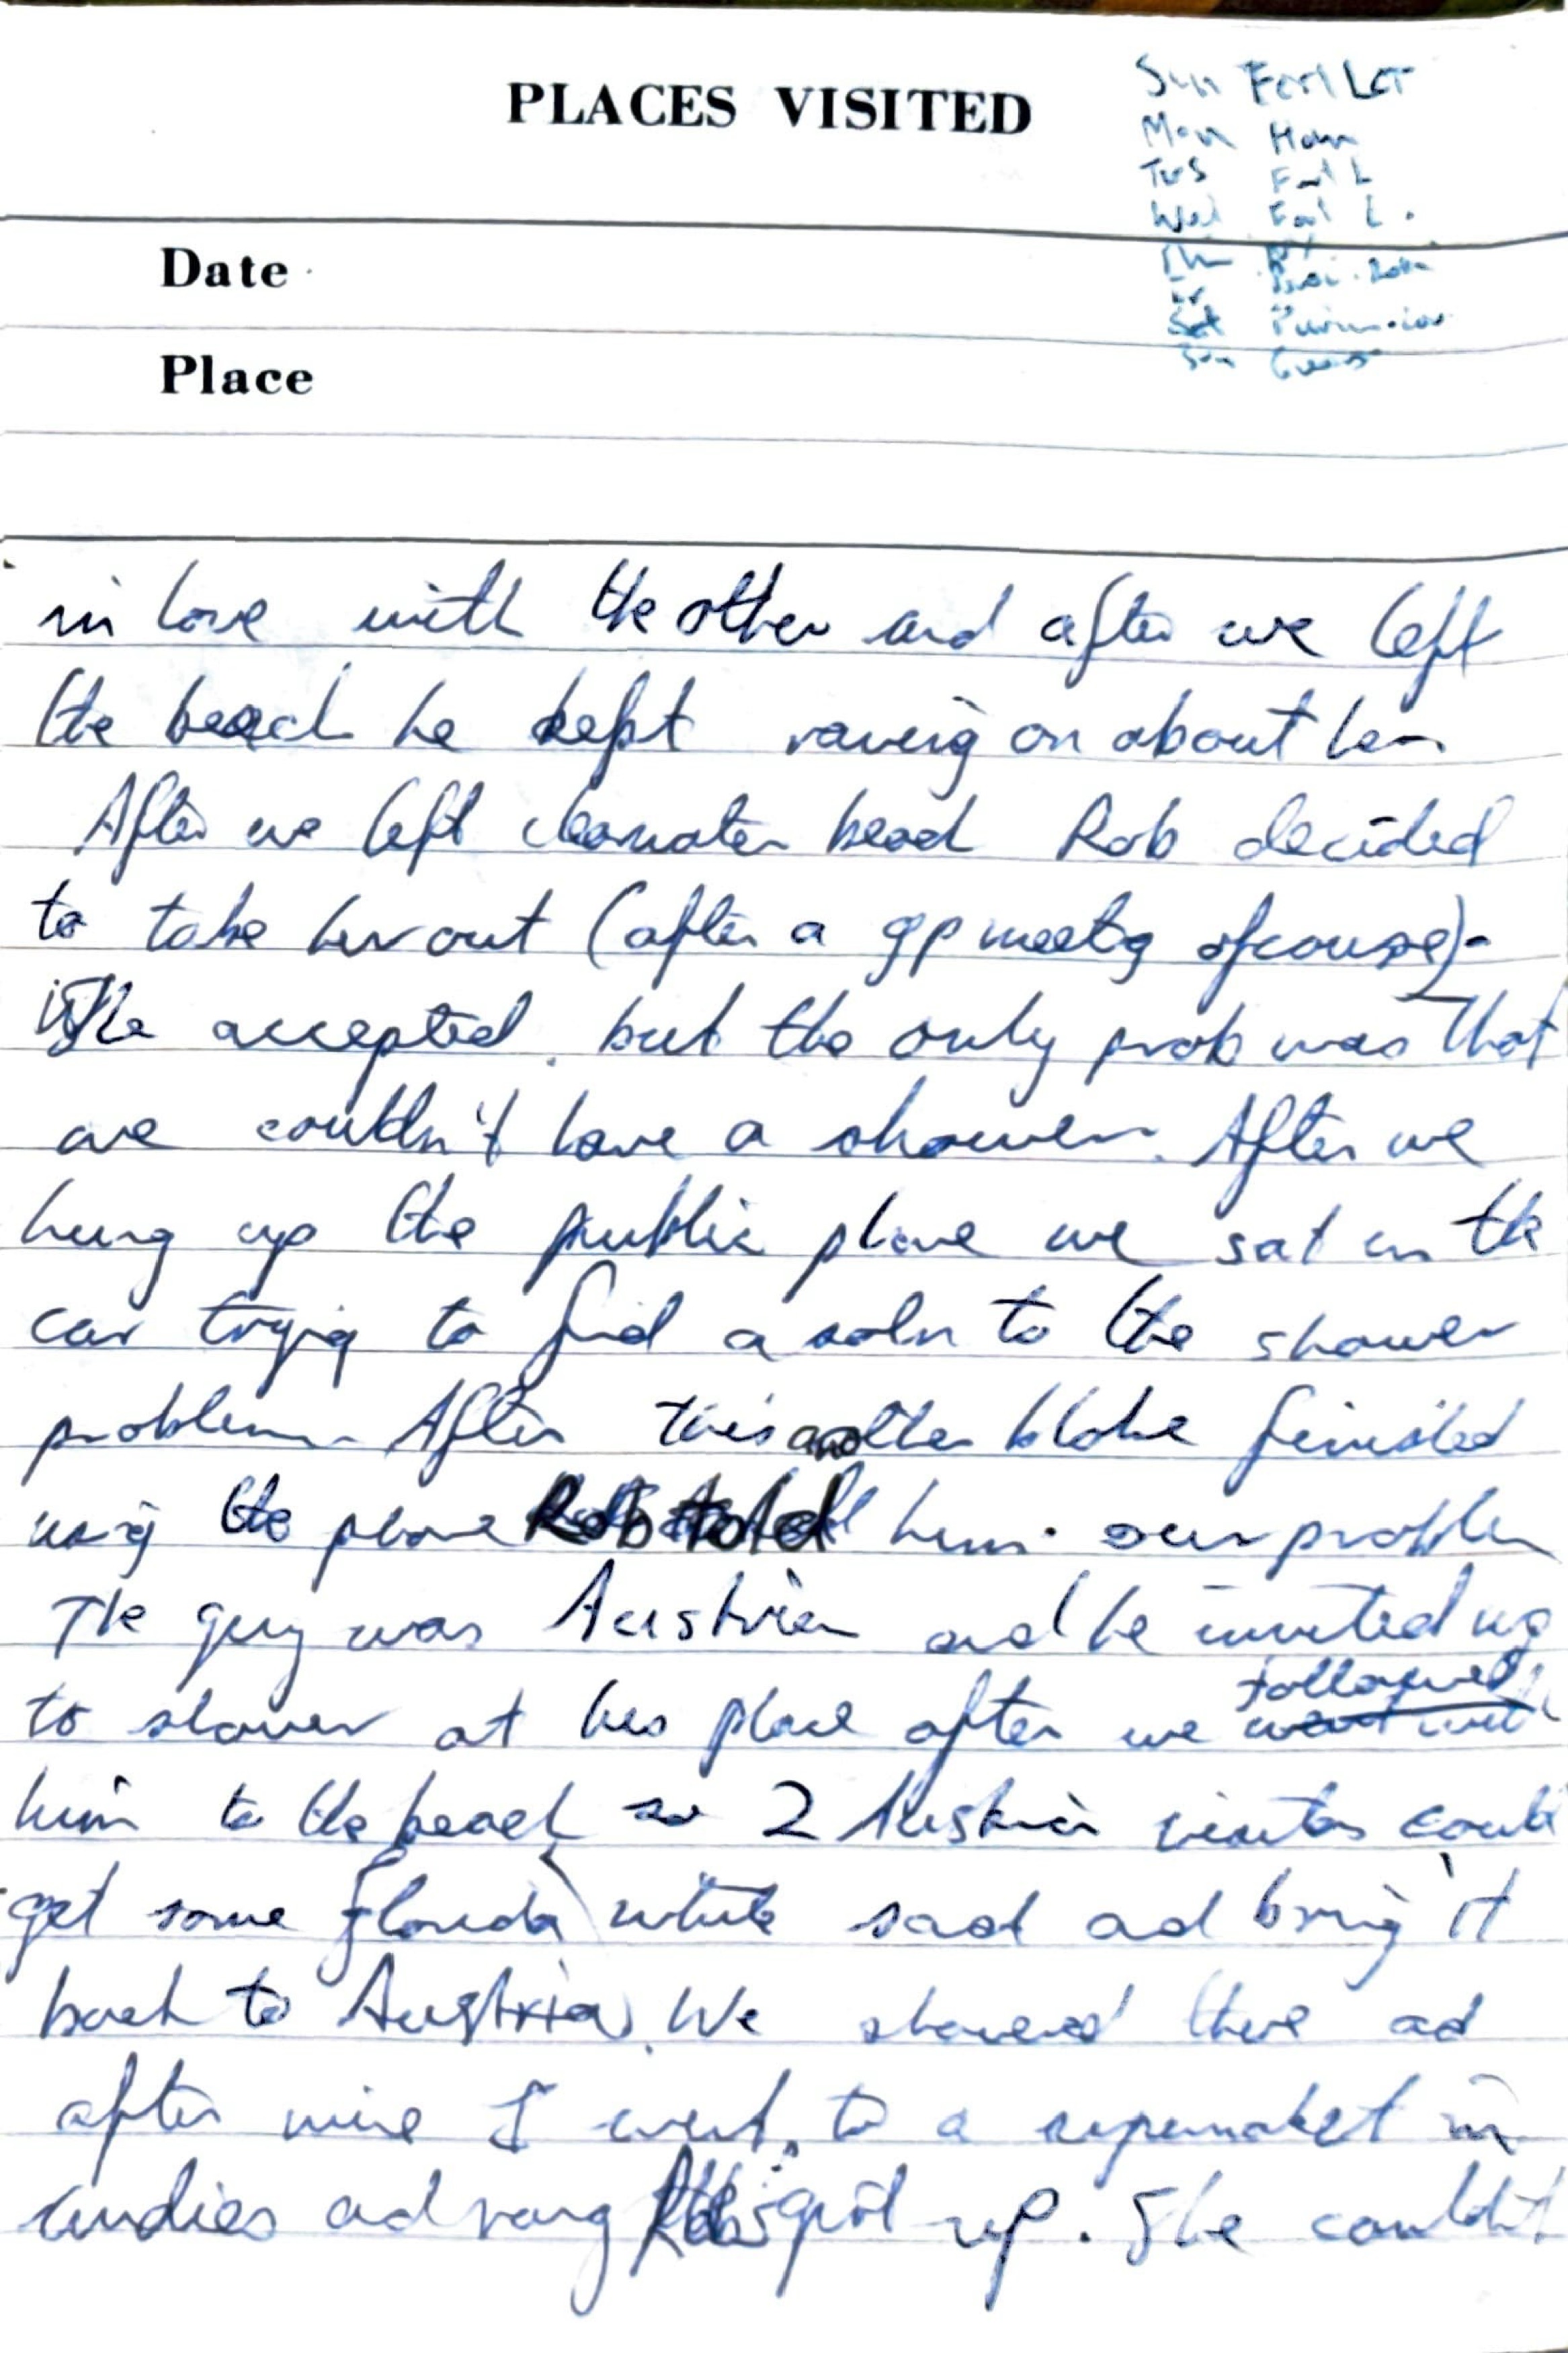 PLACES VISITED
Sun Fort LCT
Mon Ham
Tus Fort L
Wed Fort L.
Date
Sat
Place
Sun
in love with the other and after we left
the beach he kept raving on about her
After we left clearwater beach Rob decided
to take her out (after a gp meetg ofcourse)-
She accepted. but the only prob was that
we couldn't have a shower. After we
hung up the public phone we sat in the
car trying to find a soln to the shower
problem. After this another bloke finished
using the phone Rob told him our problem
The guy was Austrian and he invited us
to shower at his place after we followed
him to the beach so 2 Austrian visitors could
get some florida white sand ad bring it
back to Austria). We showered there ad
after mine I went to a supermarket in
undies ad rang Rob's girl up. She couldn't